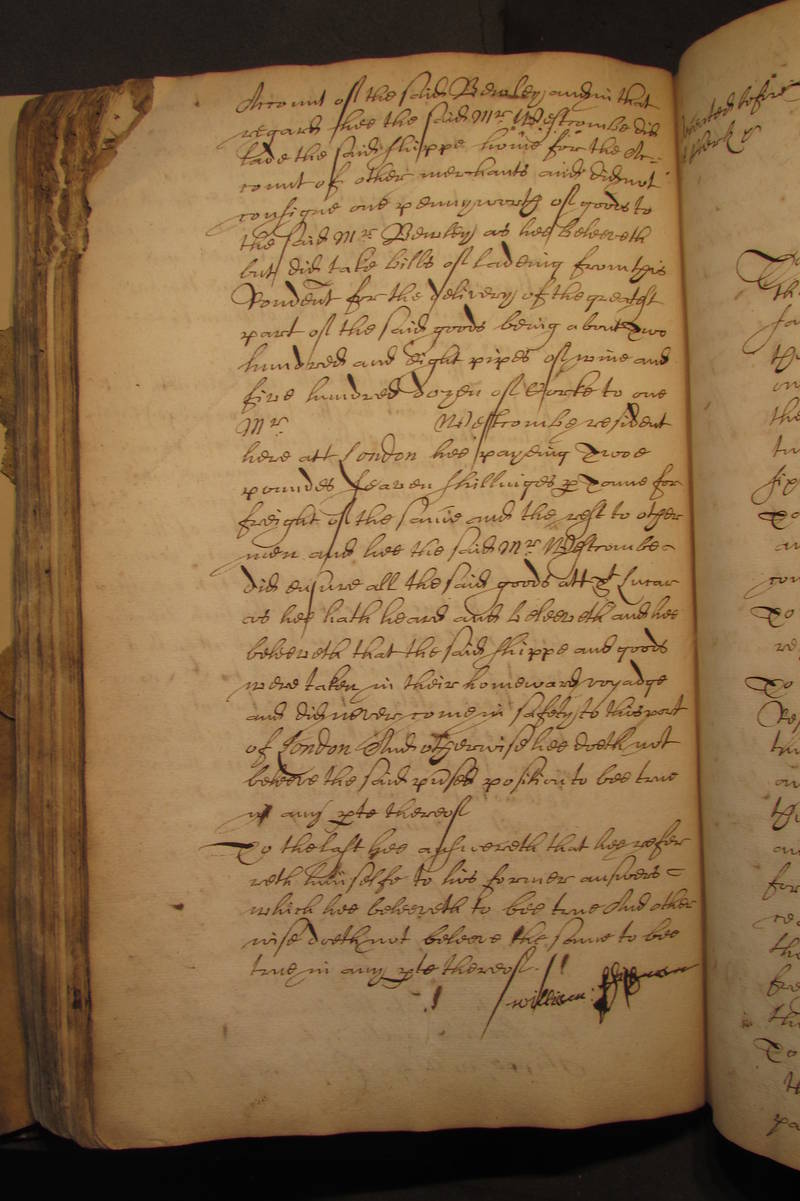 Account of the said Bewley and in that
regard hee the said Mr Westcombe did
lade the said shippe home for the Ac-
count of other merchants and did not
consigne one pennyworth of goods to
the said Mr Bewley as hee beleeveth
but did take bills of ladeing from this
Rondent for the delivery of the greatest
part of the said goods being about Two
hundred and Eight pipes of wine and
five hundred dozen of Corke to one
Mr Westcombe resident
here att London hee payeing Twoe
poundes seaven shillinges p Tonne for
freight of the same and the rest to other
men and hee the said Mr Westcombe
did ensure all the said goods att St Lucar
as hee hath heard and beleeveth and hee
beleeveth that the said shippe and goods
were taken in their homeward voyadge
and did never come in safety to this port
of London And otherwise hee doeth not
beleeve the said position to bee true
in any pte thereof
To the last hee answereth that hee refer
reth himselfe to his former answers
which hee beleeveth to bee true And other
wise doeth not beleeve the same to bee
true in any pte thereof.
william
before
To
To
To
To
To